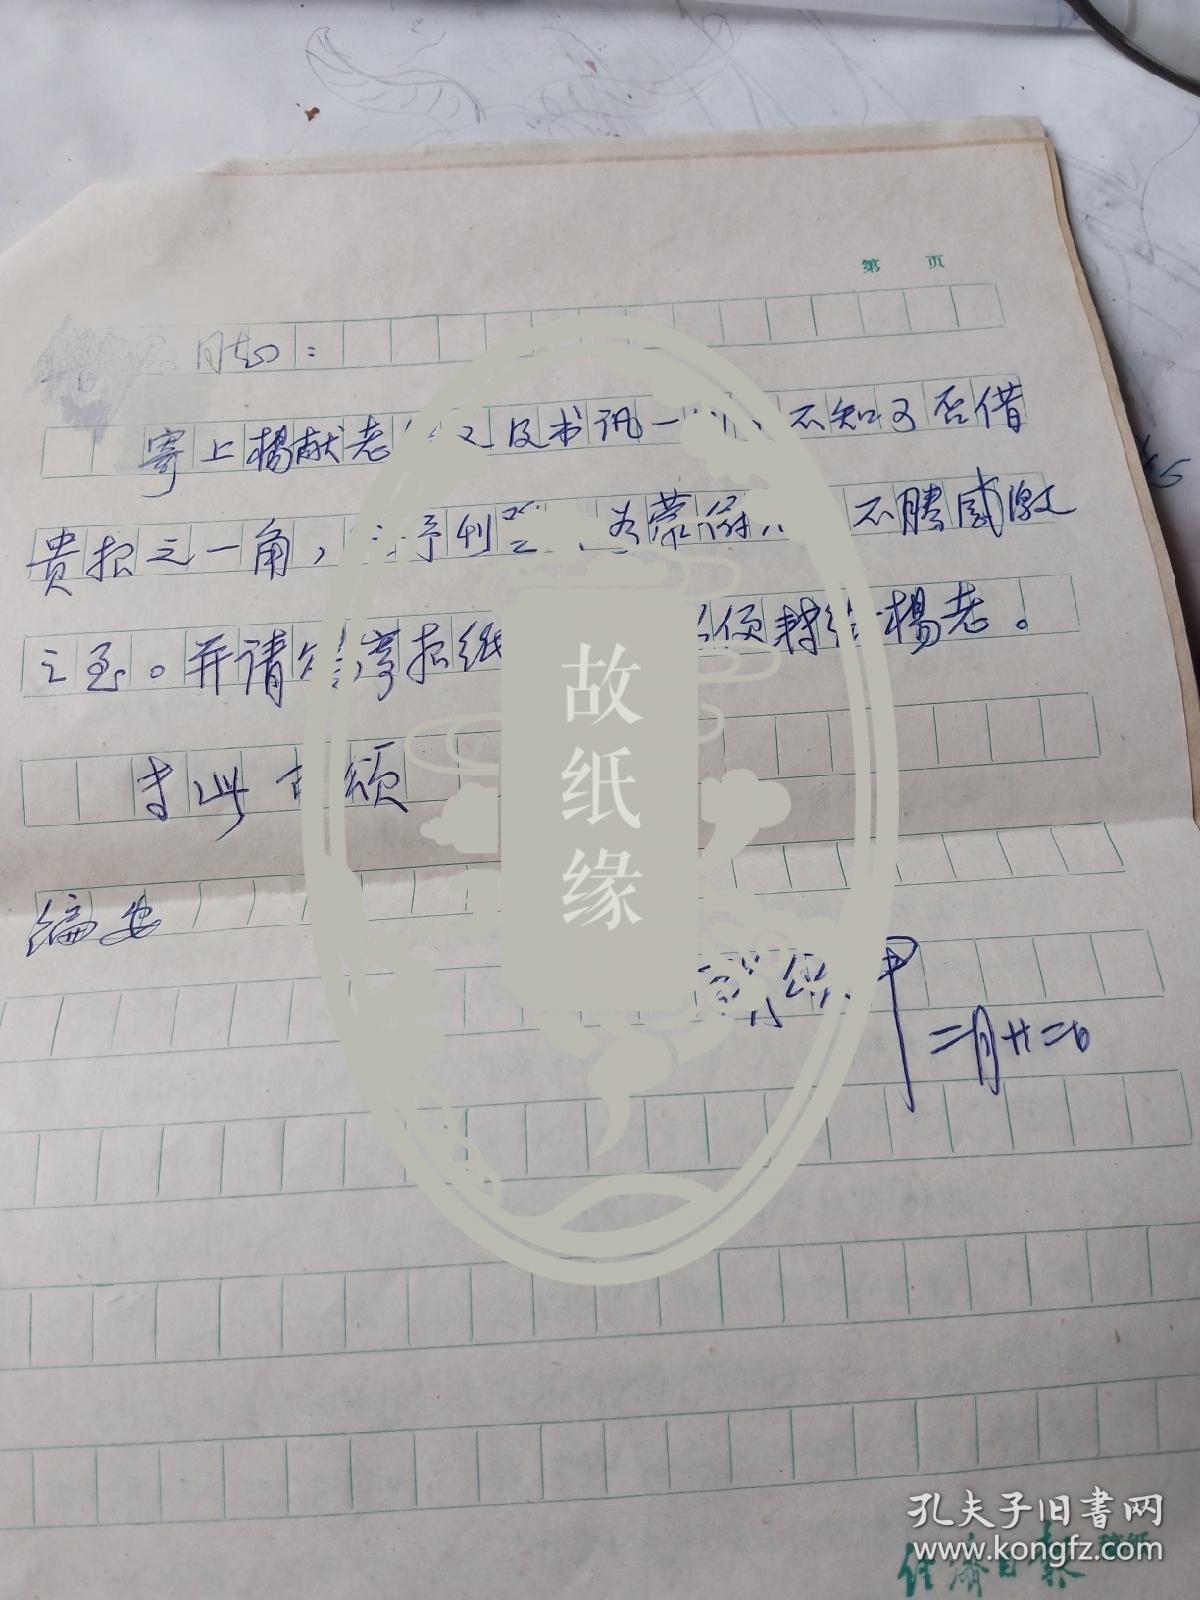 第 页
同志：
寄上杨献老 文及书讯一 不知可否借
贵报之一角，予刊 蒙 不胜感激
之至。并请 寄报纸 须转给杨老。
专此 颂
编安
二月廿二日
故纸缘
孔夫子旧书网
www.kongfz.com
经济日报 稿纸